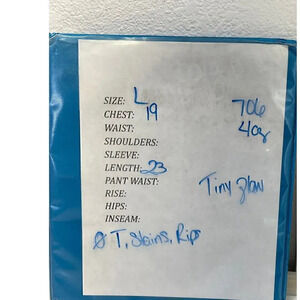 SIZE: L
CHEST: 19
WAIST:
SHOULDERS:
SLEEVE:
LENGTH: 23
PANT WAIST:
RISE:
HIPS:
INSEAM:
706
4oz
Tiny flaw
Ø T, Stains, Rips